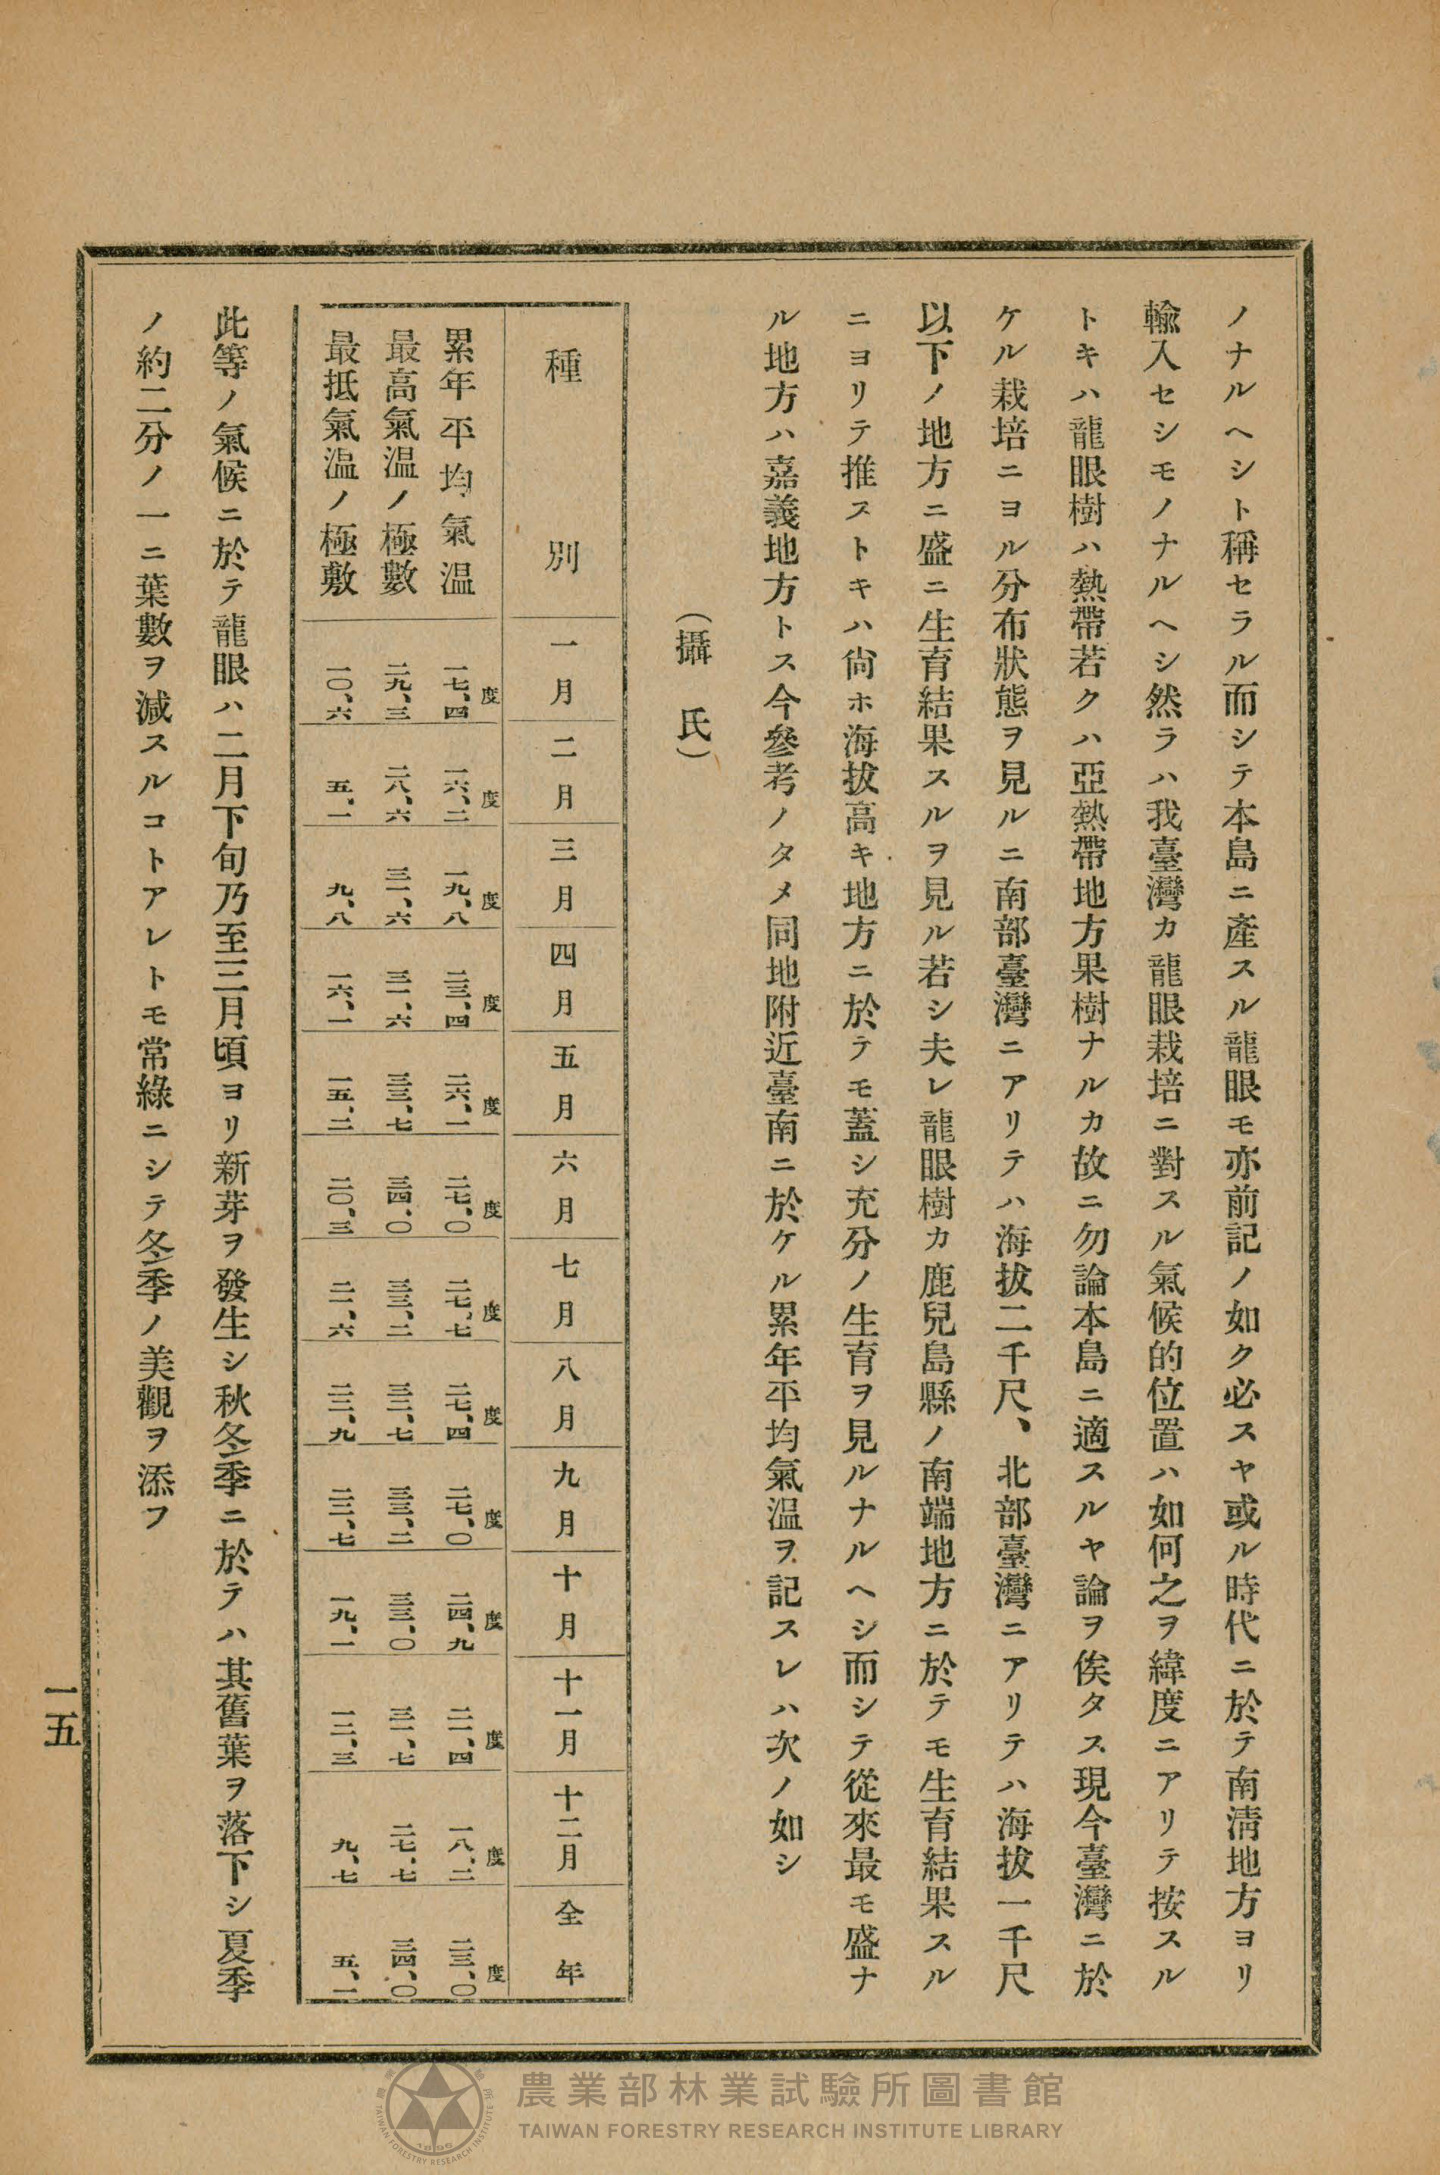 ノナルヘシト稱セラル而シテ本島ニ產スル龍眼モ亦前記ノ如ク必スヤ或ル時代ニ於テ南淸地方ヨリ
輸入セシモノナルヘシ然ラハ我臺灣カ龍眼栽培ニ對スル氣候的位置ハ如何之ヲ緯度ニアリテ按スル
トキハ龍眼樹ハ熱帶若クハ亞熱帶地方果樹ナルカ故ニ勿論本島ニ適スルヤ論ヲ俟タス現今臺灣ニ於
ケル栽培ニヨル分布狀態ヲ見ルニ南部臺灣ニアリテハ海拔二千尺、北部臺灣ニアリテハ海拔一千尺
以下ノ地方ニ盛ニ生育結果スルヲ見ル若シ夫レ龍眼樹カ鹿兒島縣ノ南端地方ニ於テモ生育結果スル
ニヨリテ推ストキハ尙ホ海拔高キ地方ニ於テモ蓋シ充分ノ生育ヲ見ルナルヘシ而シテ從來最モ盛ナ
ル地方ハ嘉義地方トス今參考ノタメ同地附近臺南ニ於ケル累年平均氣温ヲ記スレハ次ノ如シ
（攝氏）
種別 一月 二月 三月 四月 五月 六月 七月 八月 九月 十月 十一月 十二月 全年
累年平均氣温 一七、四度 一六、二度 一九、八度 二三、四度 二六、一度 二七、〇度 二七、七度 二七、四度 二七、〇度 二四、九度 二一、四度 一八、二度 二三、〇度
最高氣温ノ極數 二九、三 二八、六 三一、六 三一、六 三三、七 三四、〇 三三、二 三二、七 三三、二 三三、〇 三一、七 二七、七 三四、〇
最抵氣温ノ極敷 一〇、六 五、一 九、八 一六、一 一五、二 二〇、三 二一、六 二二、九 二二、七 一九、一 一二、三 九、七 五、一
此等ノ氣候ニ於テ龍眼ハ二月下旬乃至三月頃ヨリ新芽ヲ發生シ秋冬季ニ於テハ其舊葉ヲ落下シ夏季
ノ約二分ノ一ニ葉數ヲ減スルコトアレトモ常綠ニシテ冬季ノ美觀ヲ添フ
一五
農業部林業試驗所圖書館
TAIWAN FORESTRY RESEARCH INSTITUTE LIBRARY
TAIWAN FORESTRY RESEARCH INSTITUTE
1896